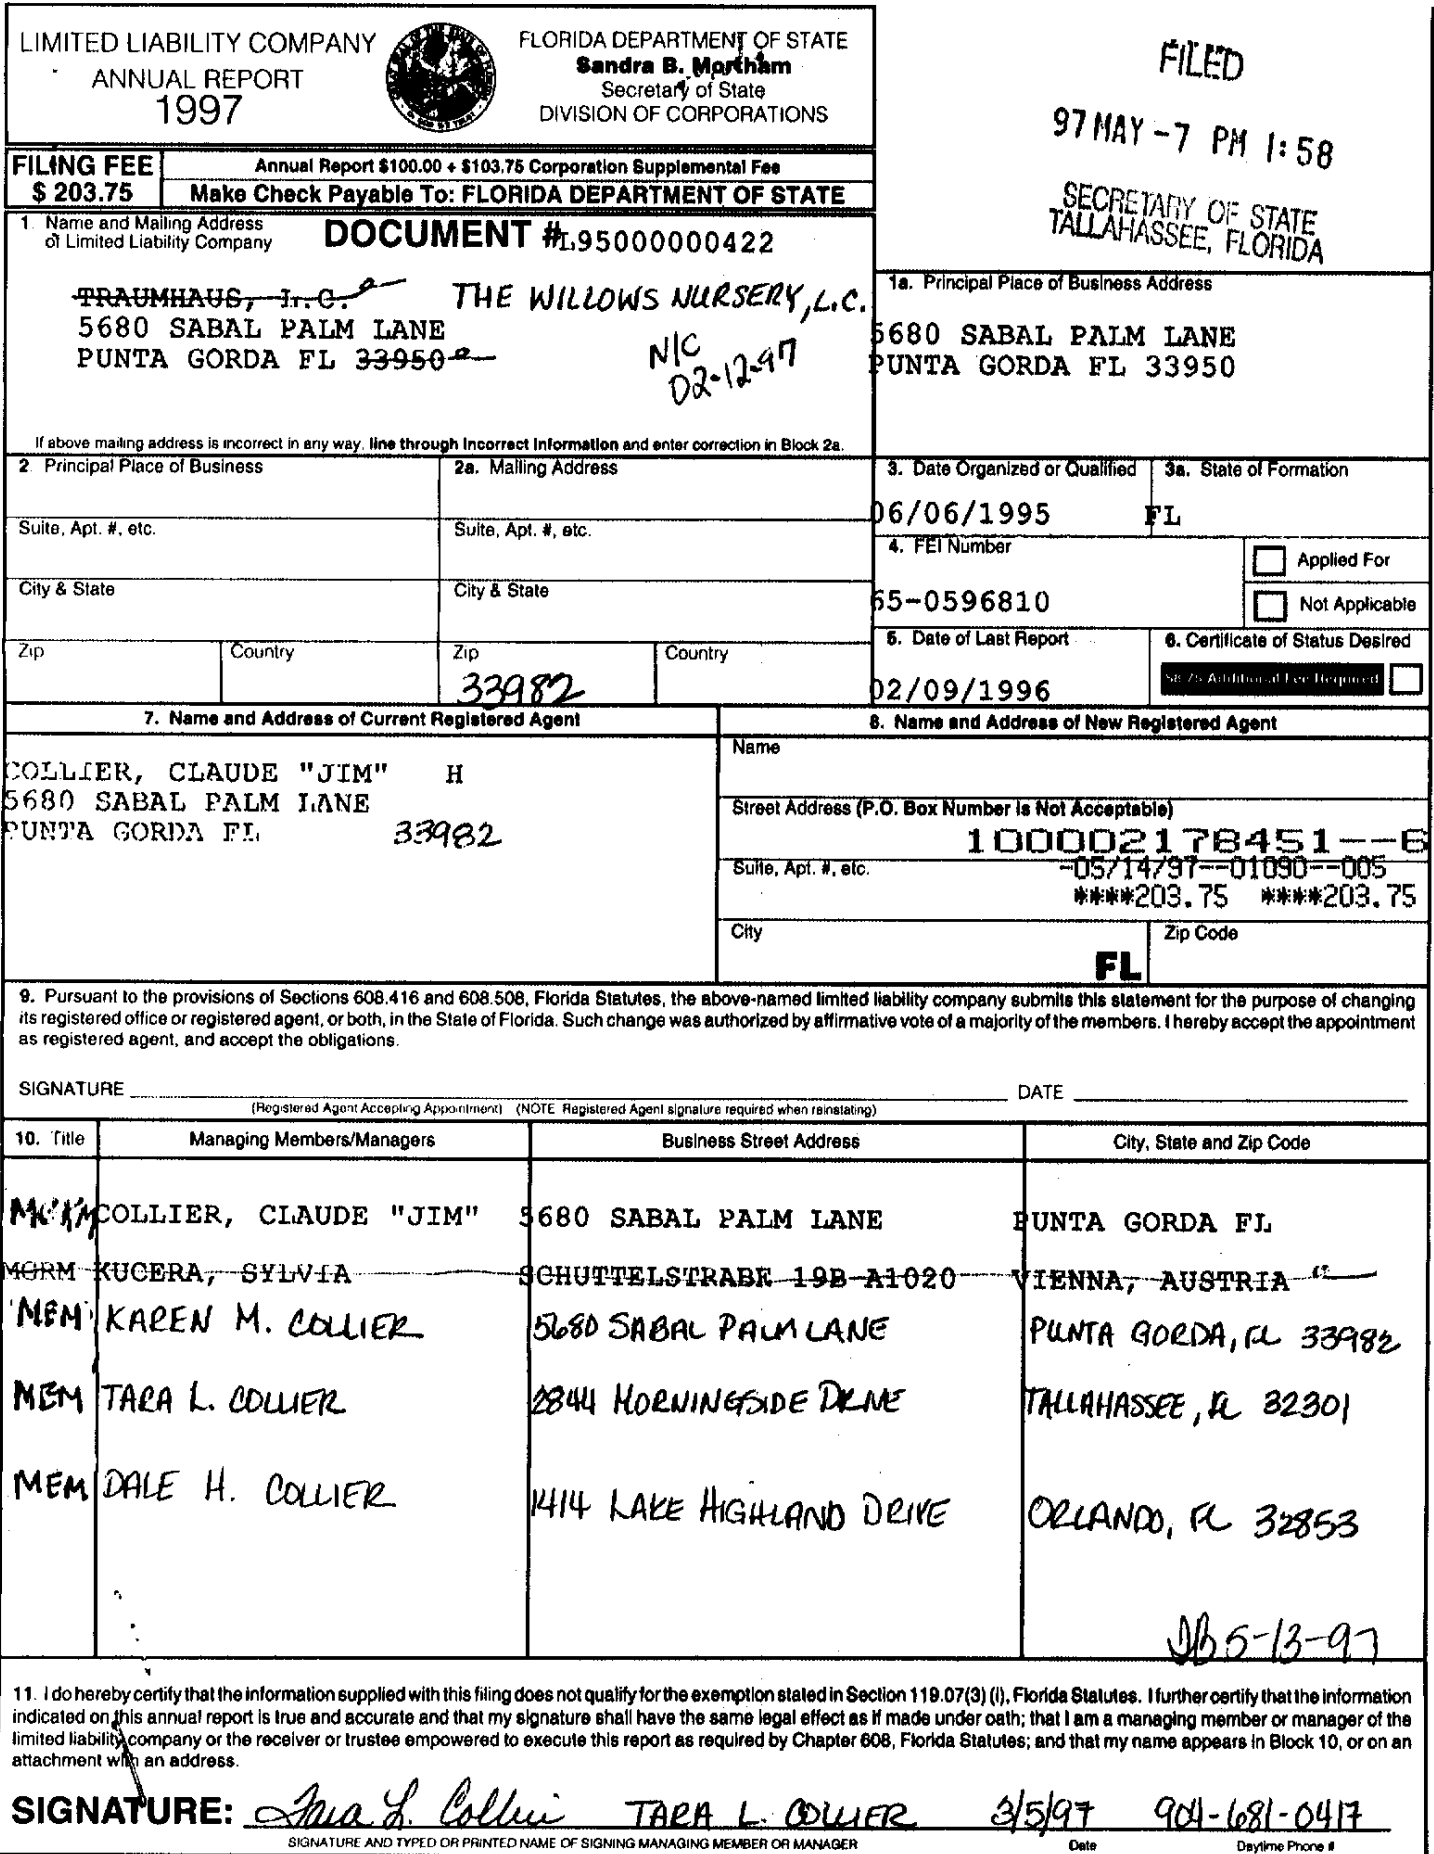 LIMITED LIABILITY COMPANY
ANNUAL REPORT
1997
FLORIDA DEPARTMENT OF STATE
Sandra B. Mortham
Secretary of State
DIVISION OF CORPORATIONS
FILED
97 MAY -7 PM 1:58
SECRETARY OF STATE
TALLAHASSEE, FLORIDA
FILING FEE
$ 203.75
Annual Report $100.00 + $103.75 Corporation Supplemental Fee
Make Check Payable To: FLORIDA DEPARTMENT OF STATE
1. Name and Mailing Address
of Limited Liability Company
DOCUMENT #L95000000422
TRAUMHAUS, L.C.
5680 SABAL PALM LANE
PUNTA GORDA FL 33950
THE WILLOWS NURSERY, L.C.
N/C
02-12-97
If above mailing address is incorrect in any way, line through Incorrect Information and enter correction in Block 2a.
1a. Principal Place of Business Address
5680 SABAL PALM LANE
PUNTA GORDA FL 33950
2. Principal Place of Business
2a. Mailing Address
Suite, Apt. #, etc.
Suite, Apt. #, etc.
City & State
City & State
Zip
Country
Zip
33982
Country
3. Date Organized or Qualified
06/06/1995
3a. State of Formation
FL
4. FEI Number
65-0596810
Applied For
Not Applicable
5. Date of Last Report
02/09/1996
6. Certificate of Status Desired
$8.75 Additional Fee Required
7. Name and Address of Current Registered Agent
COLLIER, CLAUDE "JIM" H
5680 SABAL PALM LANE
PUNTA GORDA FL 33982
8. Name and Address of New Registered Agent
Name
Street Address (P.O. Box Number Is Not Acceptable)
100002178451--6
Suite, Apt. #, etc.
-05/14/97--01090--005
****203.75 ****203.75
City
FL
Zip Code
9. Pursuant to the provisions of Sections 608.416 and 608.508, Florida Statutes, the above-named limited liability company submits this statement for the purpose of changing
its registered office or registered agent, or both, in the State of Florida. Such change was authorized by affirmative vote of a majority of the members. I hereby accept the appointment
as registered agent, and accept the obligations.
SIGNATURE DATE
(Registered Agent Accepting Appointment) (NOTE Registered Agent signature required when reinstating)
10. Title Managing Members/Managers Business Street Address City, State and Zip Code
COLLIER, CLAUDE "JIM" 5680 SABAL PALM LANE PUNTA GORDA FL
MGRM KUCERA, SYLVIA SCHUTTELSTRABE 19B A1020 VIENNA, AUSTRIA
MEM KAREN M. COLLIER 5680 SABAL PALM LANE PUNTA GORDA, FL 33982
MEM TARA L. COLLIER 2844 MORNINGSIDE DRIVE TALLAHASSEE, FL 32301
MEM DALE H. COLLIER 1414 LAKE HIGHLAND DRIVE ORLANDO, FL 32853
5-13-97
11. I do hereby certify that the information supplied with this filing does not qualify for the exemption stated in Section 119.07(3) (i), Florida Statutes. I further certify that the information
indicated on this annual report is true and accurate and that my signature shall have the same legal effect as if made under oath; that I am a managing member or manager of the
limited liability company or the receiver or trustee empowered to execute this report as required by Chapter 608, Florida Statutes; and that my name appears in Block 10, or on an
attachment with an address.
SIGNATURE: Tara L. Collier TARA L. COLLIER 3/5/97 904-681-0417
SIGNATURE AND TYPED OR PRINTED NAME OF SIGNING MANAGING MEMBER OR MANAGER Date Daytime Phone #